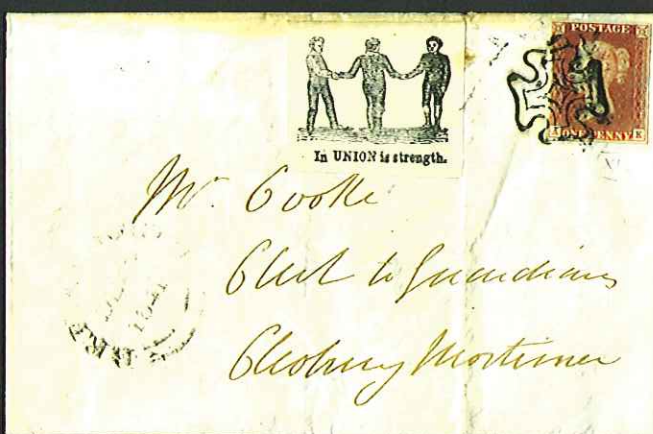 POSTAGE
ONE PENNY
In UNION is strength.
Mr. Cooke
Clerk to Guardians
Cleobury Mortimer